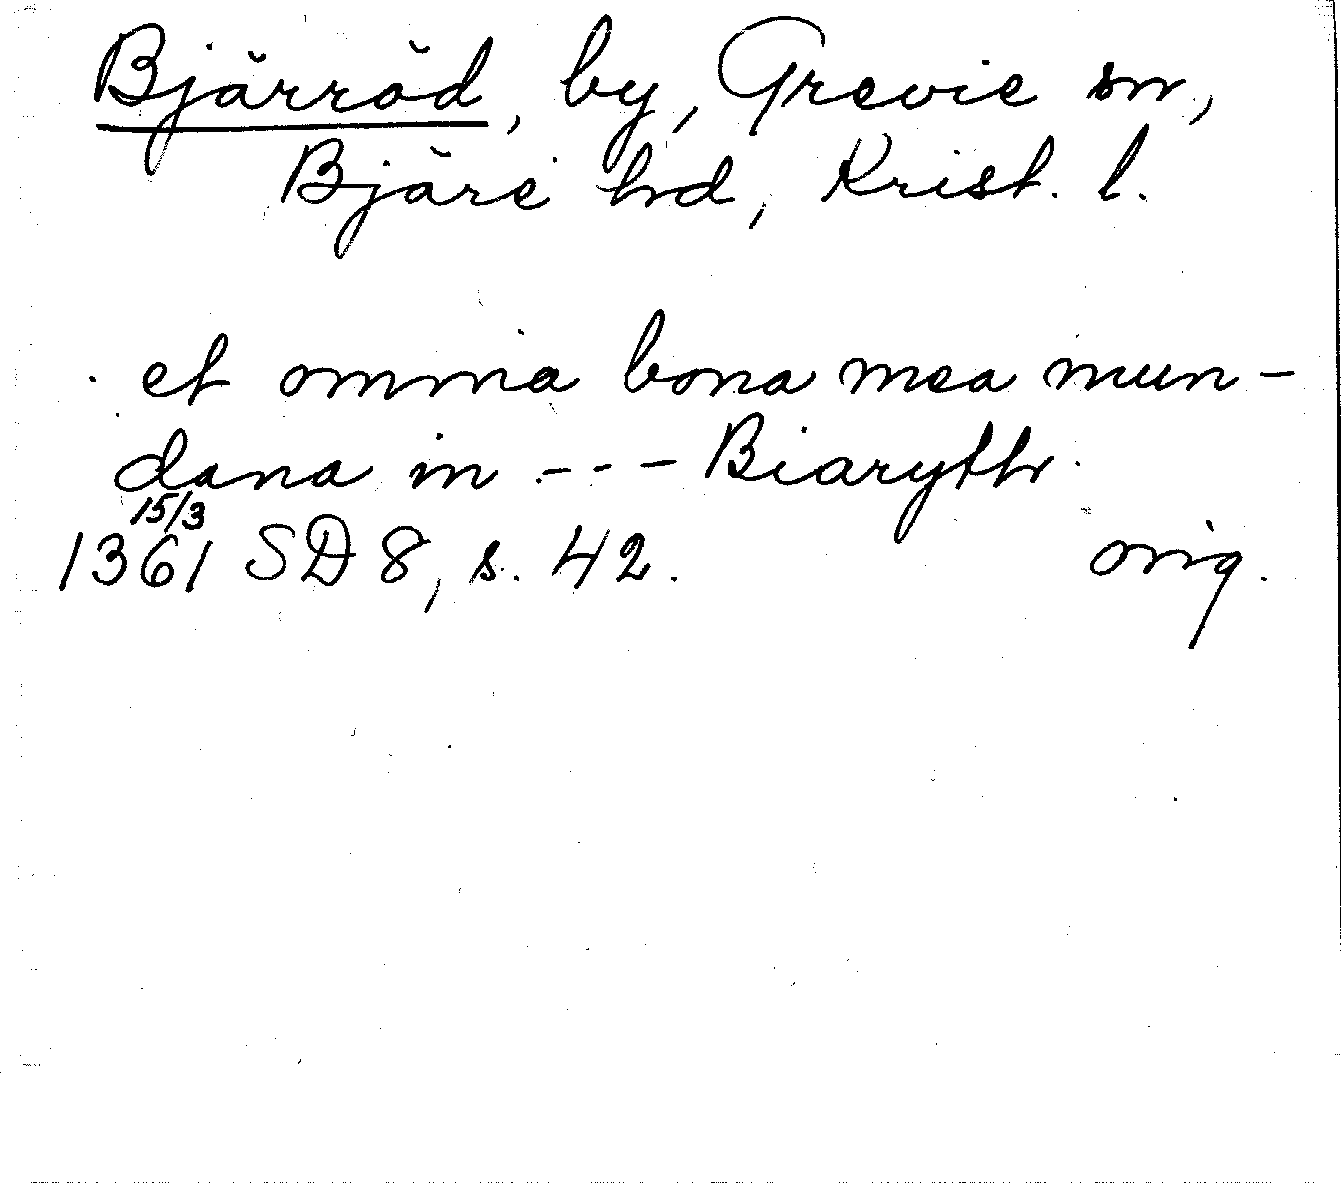 Bjärröd, by, Grevie sn,
Bjäre hd, Krist. l.
et omnia bona mea mun-
dana in --- Biaryth
15/3
1361 SD 8, s. 42. orig.